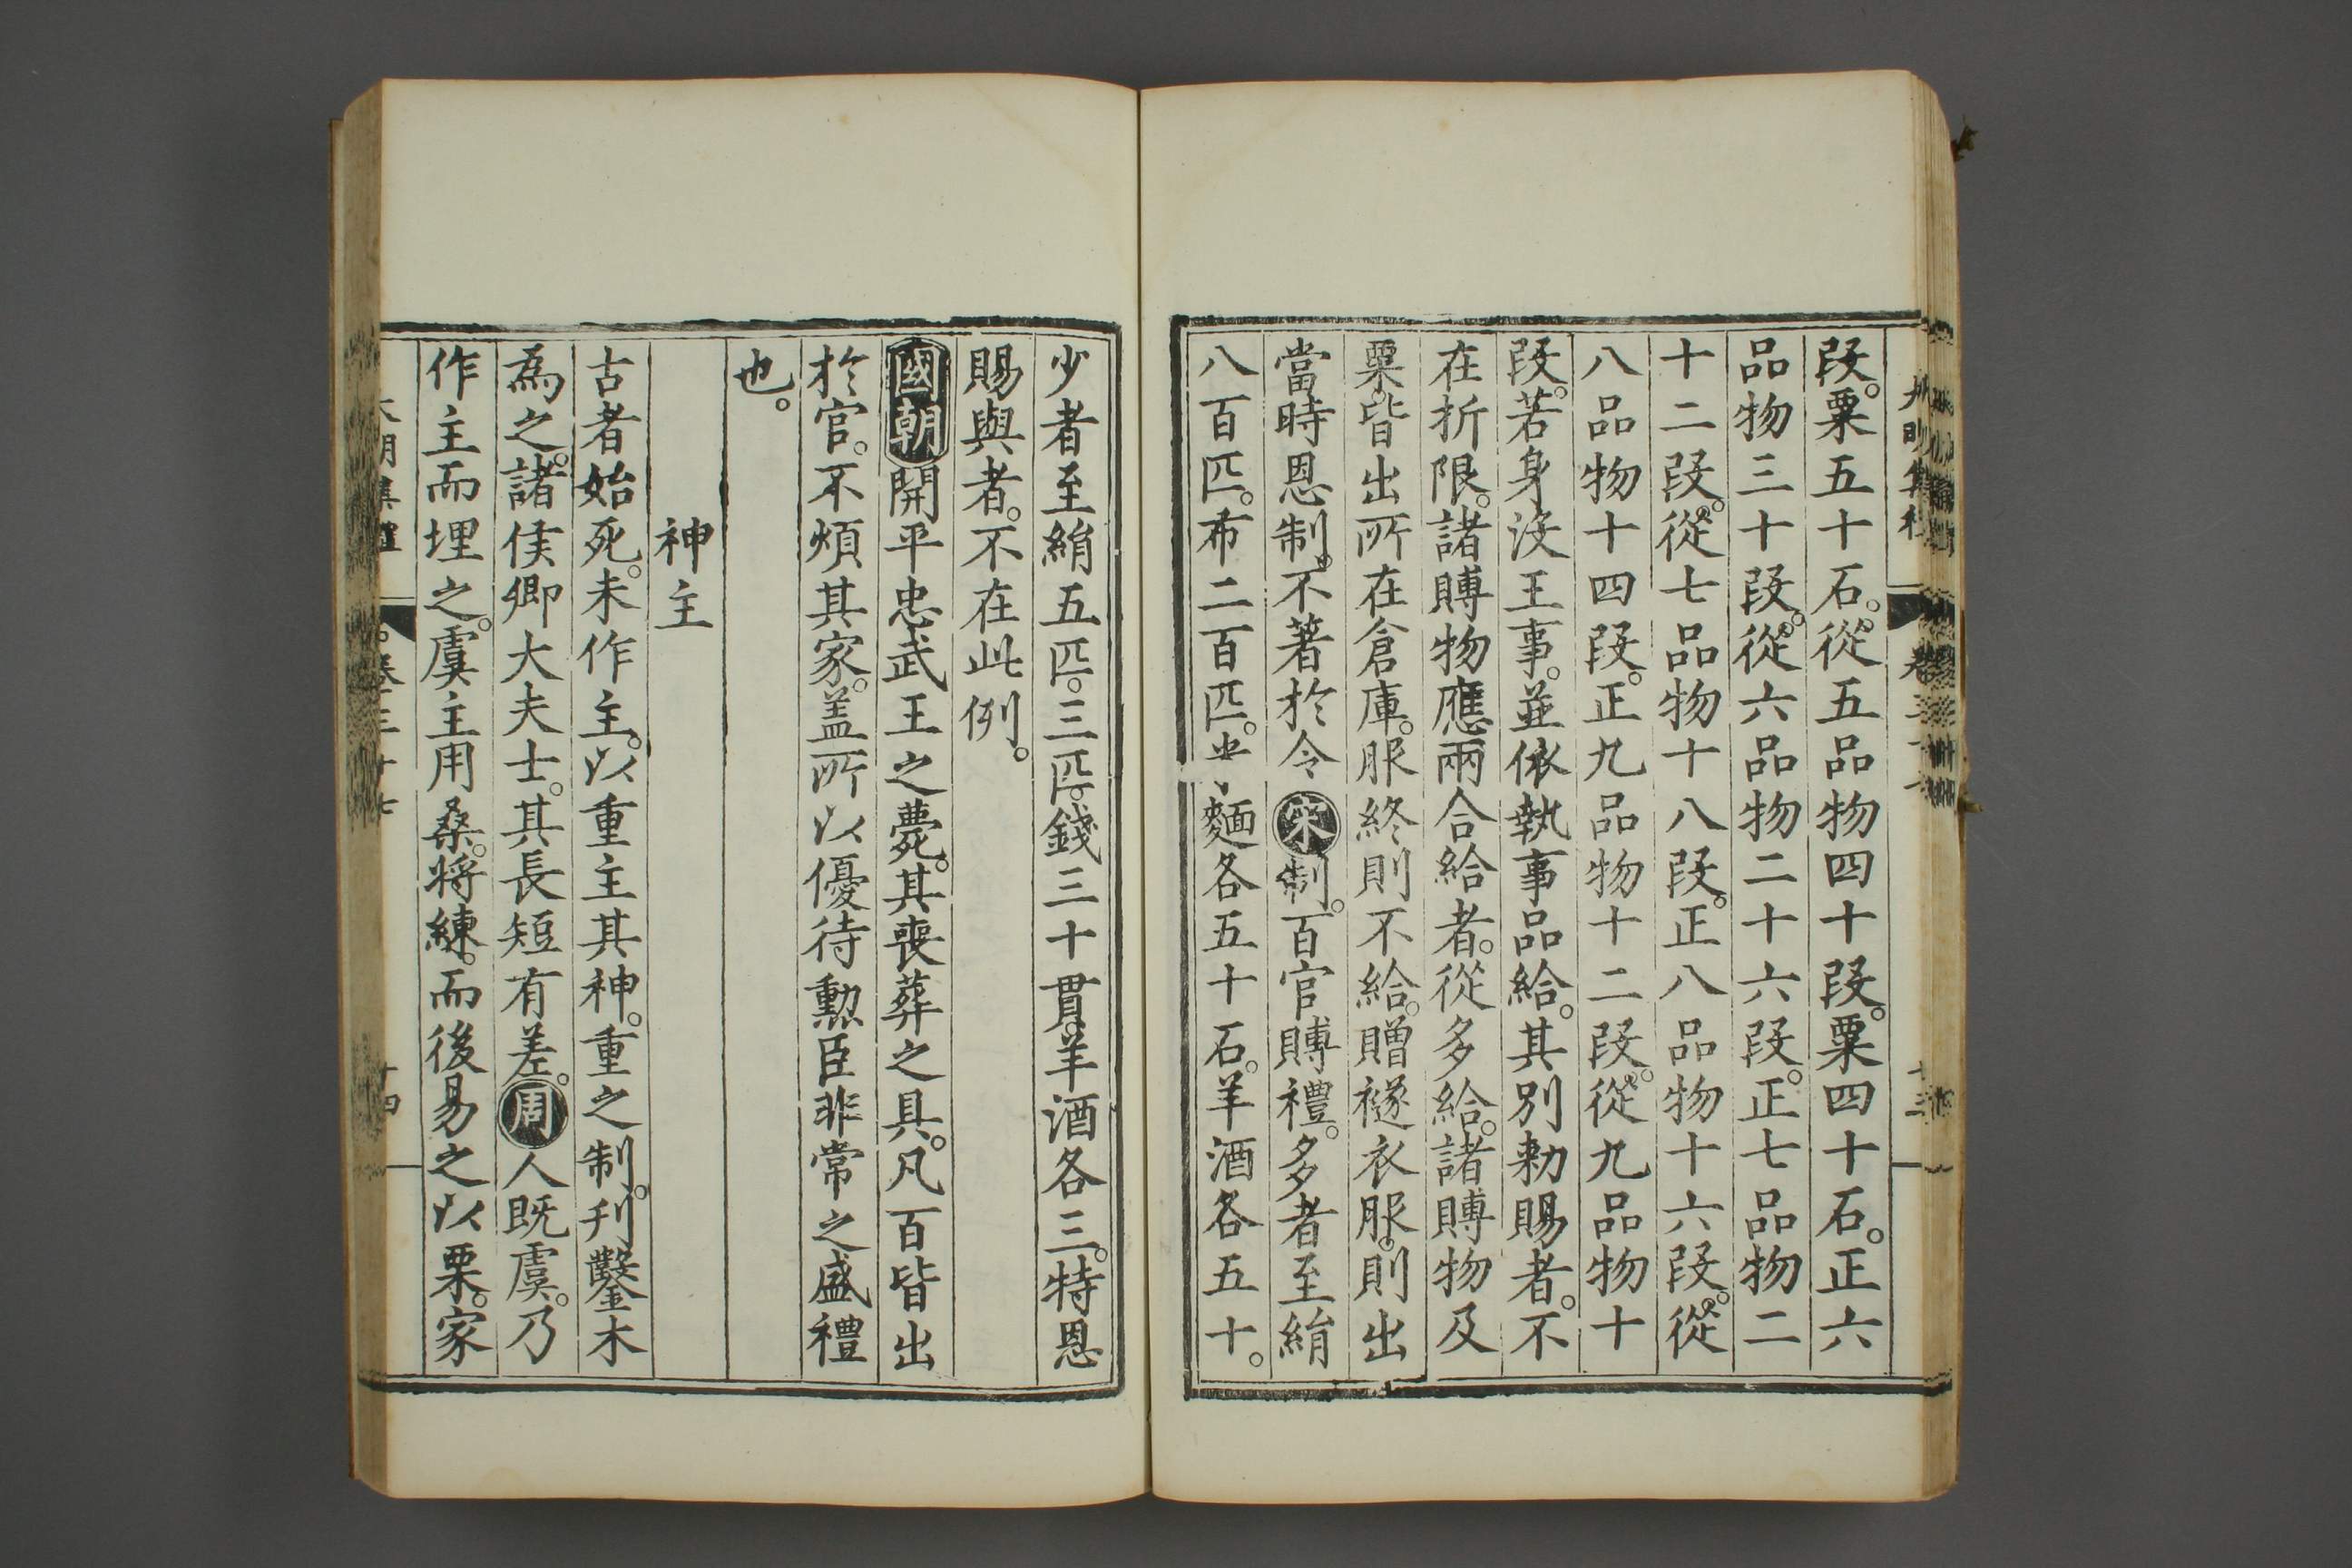 段。粟五十石。從五品物四十段。粟四十石。正六
品物三十段。從六品物二十六段。正七品物二
十二段。從七品物十八段。正八品物十六段。從
八品物十四段。正九品物十二段。從九品物十
段。若身沒王事。並依執事品給。其別勅賜者。不
在折限。諸賻物應兩合給者。從多給。諸賻物及
粟。皆出所在倉庫。服終則不給。贈襚衣服。則出
當時恩制。不著於令宋制。百官賻禮。多者至絹
八百匹。布二百匹。麵各五十石。羊酒各五十。
少者至絹五匹。三匹。錢三十貫。羊酒各三。特恩
賜與者。不在此例。
國朝開平忠武王之薨。其喪葬之具。凡百皆出
於官。不煩其家。蓋所以優待勳臣非常之盛禮
也。
神主
古者始死。未作主。以重主其神。重之制。刋鑿木
為之。諸侯卿大夫士。其長短有差。周人既虞。乃
作主而埋之。虞主用桑。將練。而後易之以栗。家
卷三十七
十四